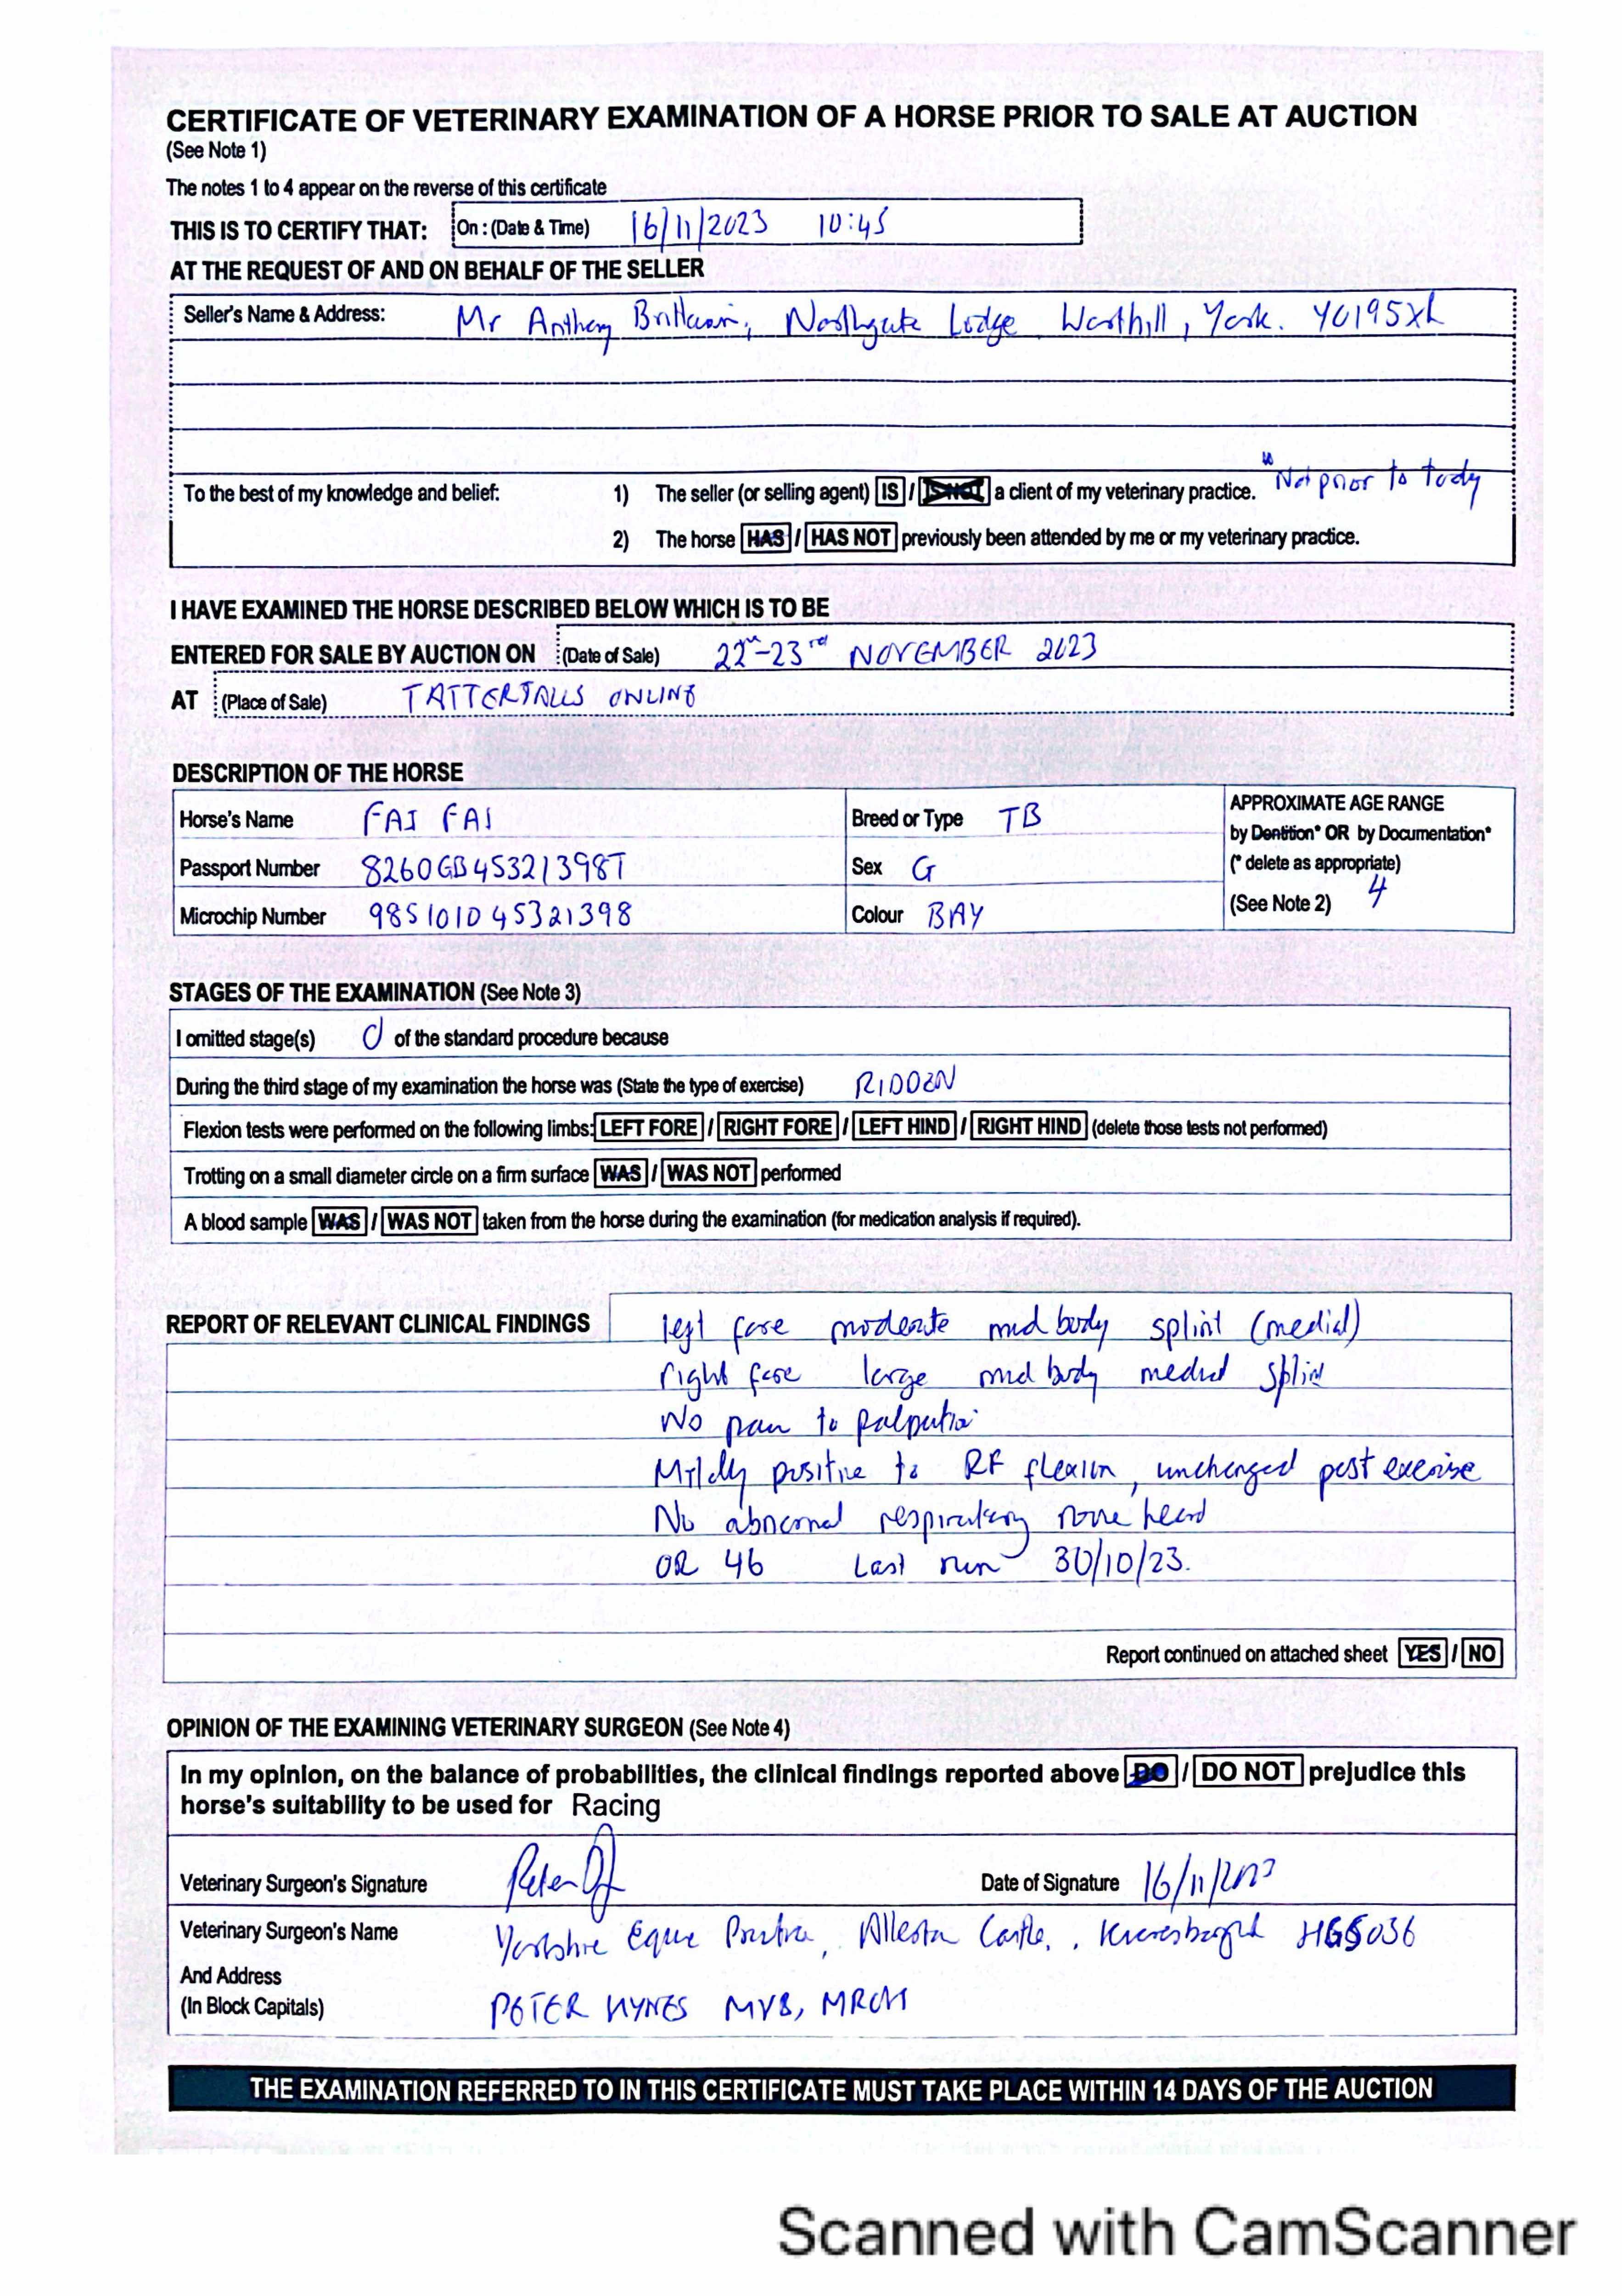 CERTIFICATE OF VETERINARY EXAMINATION OF A HORSE PRIOR TO SALE AT AUCTION
(See Note 1)
The notes 1 to 4 appear on the reverse of this certificate
THIS IS TO CERTIFY THAT: On : (Date & Time) 16/11/2023 10:45
AT THE REQUEST OF AND ON BEHALF OF THE SELLER
Seller's Name & Address: Mr Anthony Brittain, Northgate Lodge Warthill, York. YO195XL
To the best of my knowledge and belief: 1) The seller (or selling agent) IS / IS NOT a client of my veterinary practice. Not prior to today
2) The horse HAS / HAS NOT previously been attended by me or my veterinary practice.
I HAVE EXAMINED THE HORSE DESCRIBED BELOW WHICH IS TO BE
ENTERED FOR SALE BY AUCTION ON (Date of Sale) 22nd-23rd NOVEMBER 2023
AT (Place of Sale) TATTERSALLS ONLINE
DESCRIPTION OF THE HORSE
Horse's Name FAI FAI Breed or Type TB APPROXIMATE AGE RANGE
by Dentition* OR by Documentation*
Passport Number 8260GB45321398T Sex G (* delete as appropriate)
Microchip Number 985101045321398 Colour BAY (See Note 2) 4
STAGES OF THE EXAMINATION (See Note 3)
I omitted stage(s) of the standard procedure because
During the third stage of my examination the horse was (State the type of exercise) RIDDEN
Flexion tests were performed on the following limbs: LEFT FORE / RIGHT FORE / LEFT HIND / RIGHT HIND (delete those tests not performed)
Trotting on a small diameter circle on a firm surface WAS / WAS NOT performed
A blood sample WAS / WAS NOT taken from the horse during the examination (for medication analysis if required).
REPORT OF RELEVANT CLINICAL FINDINGS left fore moderate mid body splint (medial)
right fore large mid body medial splint
No pain to palpation
Mildly positive to RF flexion, unchanged post exercise
No abnormal respiratory noise heard
OR 46 Last run 30/10/23.
Report continued on attached sheet YES / NO
OPINION OF THE EXAMINING VETERINARY SURGEON (See Note 4)
In my opinion, on the balance of probabilities, the clinical findings reported above DO / DO NOT prejudice this
horse's suitability to be used for Racing
Veterinary Surgeon's Signature Peter Date of Signature 16/11/2023
Veterinary Surgeon's Name Yorkshire Equine Practice, Allerton Castle, Knaresborough
And Address
(In Block Capitals) PETER HYNES MVB, MRCVS
THE EXAMINATION REFERRED TO IN THIS CERTIFICATE MUST TAKE PLACE WITHIN 14 DAYS OF THE AUCTION
Scanned with CamScanner